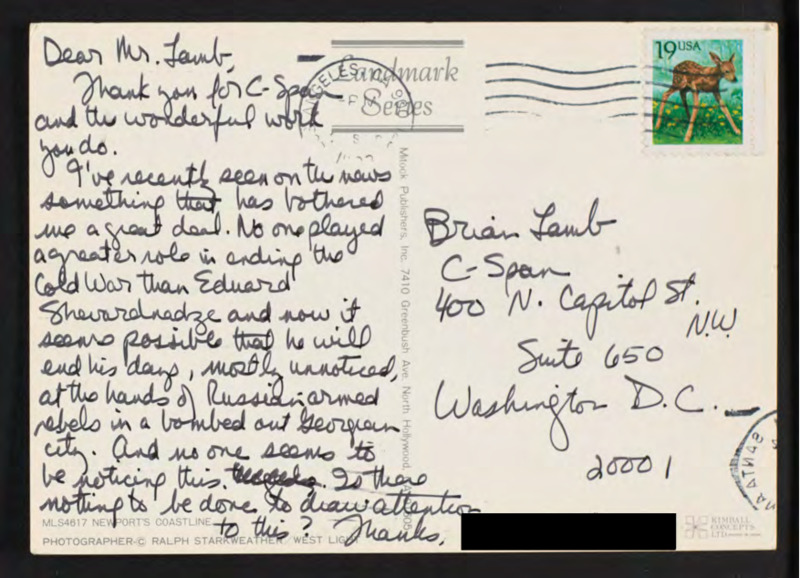 Dear Mr. Lamb,
Thank you for C-Span
and the wonderful work
you do.
I've recently seen on the news
something that has bothered
me a great deal. No one played
a greater role in ending the
Cold War than Eduard
Shevardnadze and now it
seems possible that he will
end his days, mostly unnoticed,
at the hands of Russian armed
rebels in a bombed out Georgian
city. And no one seems to
be noticing this. Is there
nothing to be done to draw attention
to this? Thanks,
Landmark
Series
ANGELES CA
PM
19 USA
Brian Lamb
C-Span
400 N. Capitol St.
N.W.
Suite 650
Washington D.C.
20001
Mitock Publishers, Inc. 7410 Greenbush Ave. North Hollywood,
MLS4617 NEWPORT'S COASTLINE
PHOTOGRAPHER-© RALPH STARKWEATHER/WEST LIGHT
KIMBALL
CONCEPTS
LTD